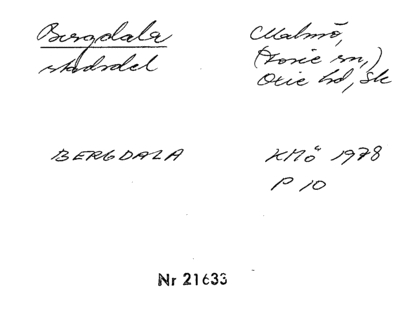 Bergdala
stadsdel
Malmö,
(Fosie sn,)
Oxie hd, Sk
BERGDALA
KMö 1978
P 10
Nr 21633